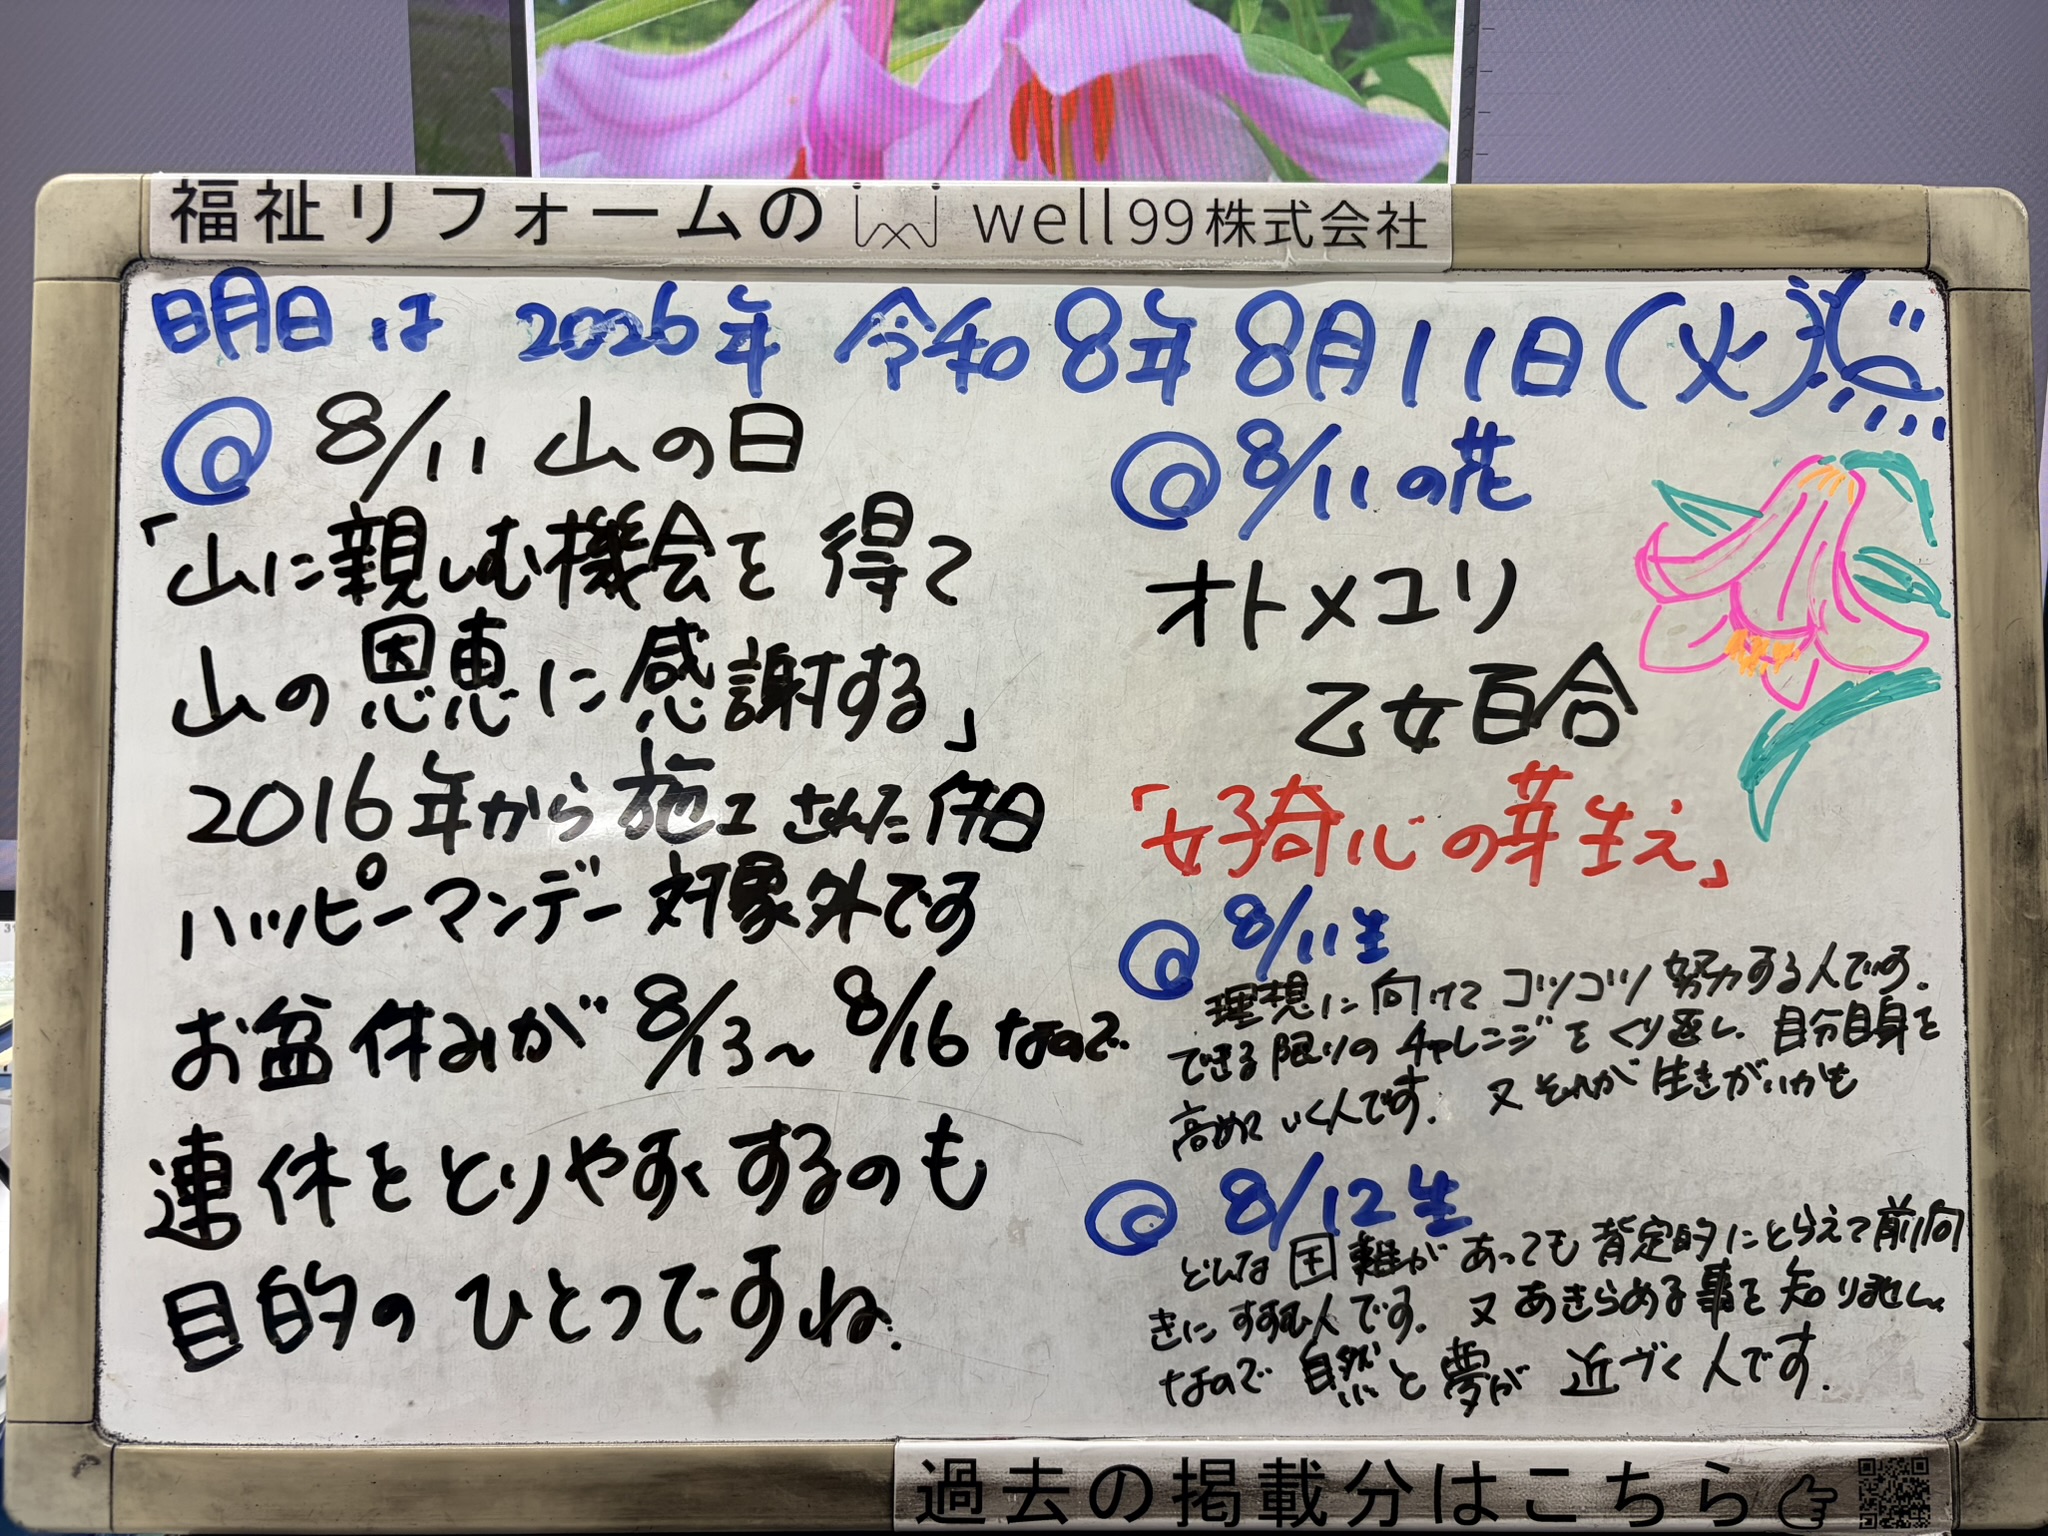 福祉リフォームの well99株式会社
明日は 2026年 令和8年 8月11日(火)
@ 8/11 山の日
「山に親しむ機会を得て
山の恩恵に感謝する」
2016年から施工された休日
ハッピーマンデー対象外です
お盆休みが 8/13〜8/16 なので
連休をとりやすくするのも
目的のひとつですね.
@ 8/11の花
オトメユリ
乙女百合
「好奇心の芽生え」
@ 8/11生
理想に向けてコツコツ努力する人です.
できる限りのチャレンジをくり返し、自分自身を
高めていく人です. 又それが生きがいかも
@ 8/12生
どんな困難があっても肯定的にとらえて前向
きにすすむ人です. 又あきらめる事を知りませんヽ
なので 自然と夢が 近づく人です.
過去の掲載分はこちら